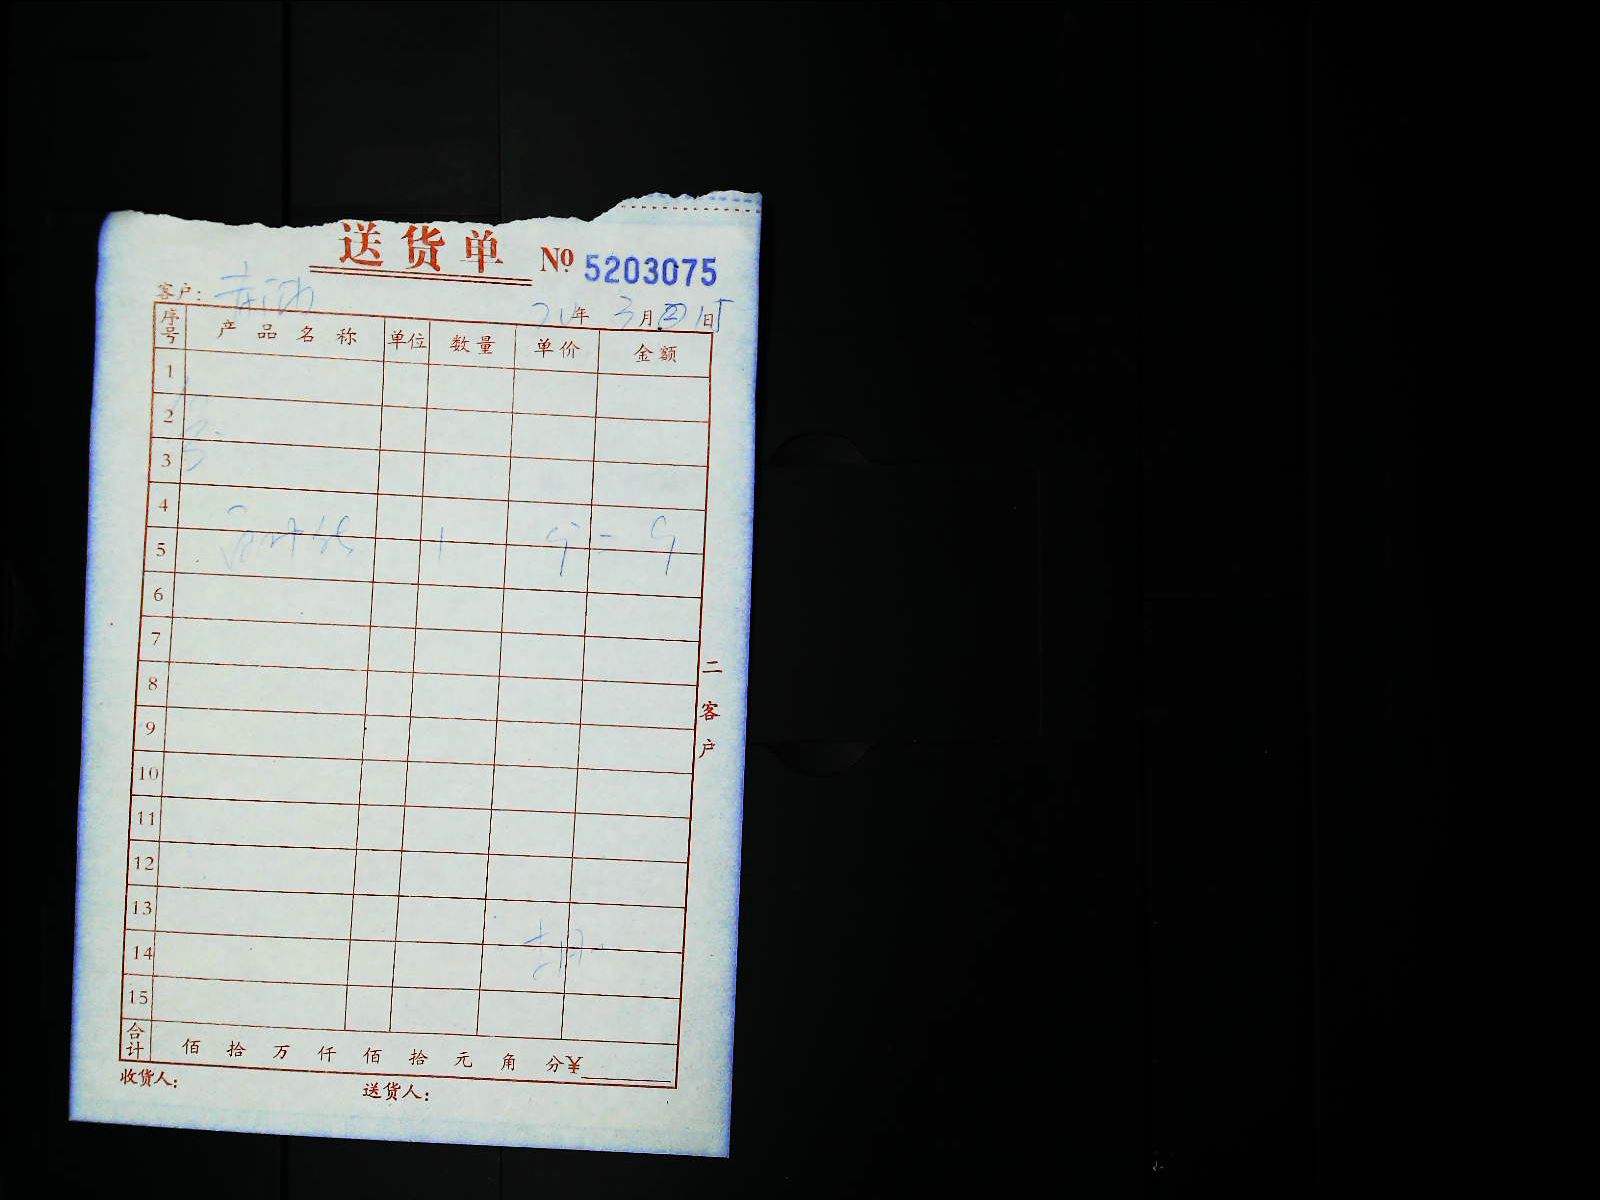 送货单 Nº 5203075
客户：
年 3月 日
序号 产品名称 单位 数量 单价 金额
1
2
3
4
5
6
7
8
9
10
11
12
13
14
15
二客户
合计 佰 拾 万 仟 佰 拾 元 角 分¥
收货人： 送货人：